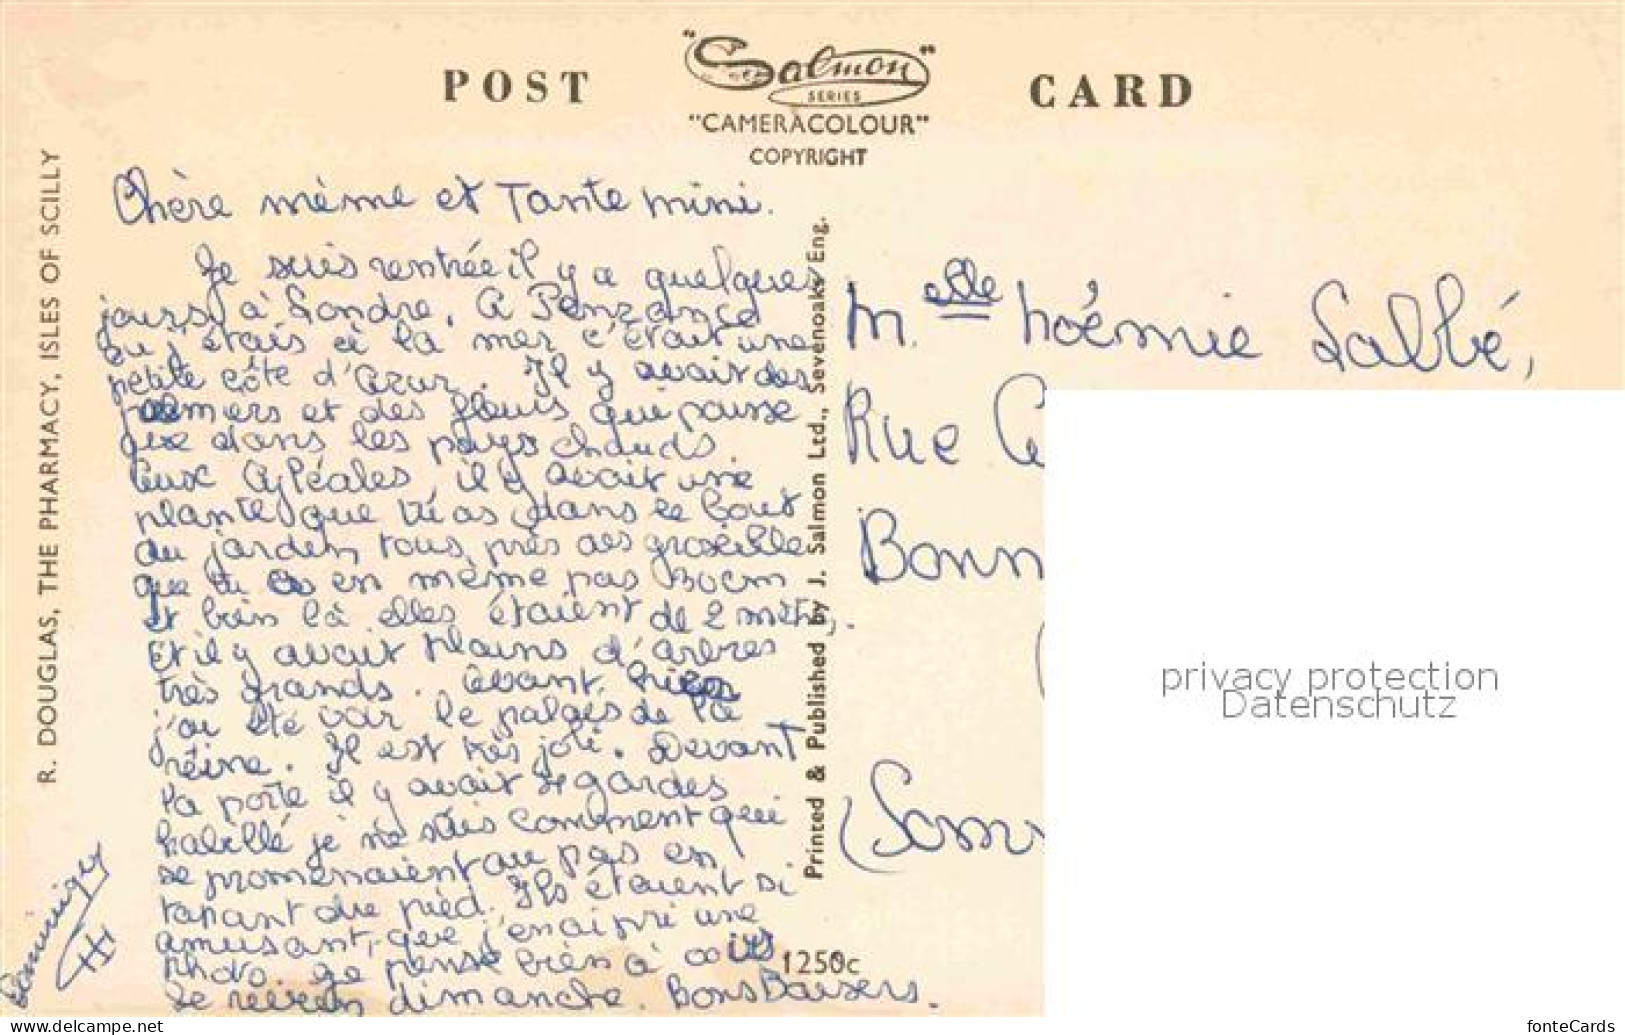 POST CARD
"Salmon"
SERIES
"CAMERACOLOUR"
COPYRIGHT
R. DOUGLAS, THE PHARMACY, ISLES OF SCILLY
Chère mème et Tante mini.
Je suis rentrée il y a quelques
jours à Londre. A Penzance
ou j'étais à la mer c'était une
petite côte d'azur. Il y avait des
palmiers et des fleurs qui pousse
que dans les pays chauds
il y avait une
plante que tu as dans le bout
du jardin, tous près des groseille
que tu as en même pas 30cm
et bien là elles étaient de 2 mètr,.
Et il y avait plains d'arbres
très grands. Avant hier
j'ai été voir le palais de la
reine. Il est très joli. Devant
la porte il y avait gardes
habillé je ne suis comment qui
se promenaient au pas en
tapant du pied. Ils étaient si
amusant, que j'en ai pri une
photo. Je pense bien à vous
Je reviens dimanche. Bons Baisers.
Printed & Published by J. Salmon Ltd., Sevenoaks Eng.
Melle Noémie Sallé,
Rue
Bonn
(Som
1250c
privacy protection
Datenschutz
www.delcampe.net
fonteCards